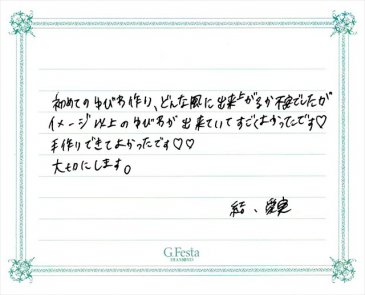 初めてのゆびわ作り、どんな風に出来上がるか不安でしたが
イメージ以上のゆびわが出来ていてすごくよかったです♡
手作りできてよかったです♡♡
大切にします。
結、愛実
G.Festa